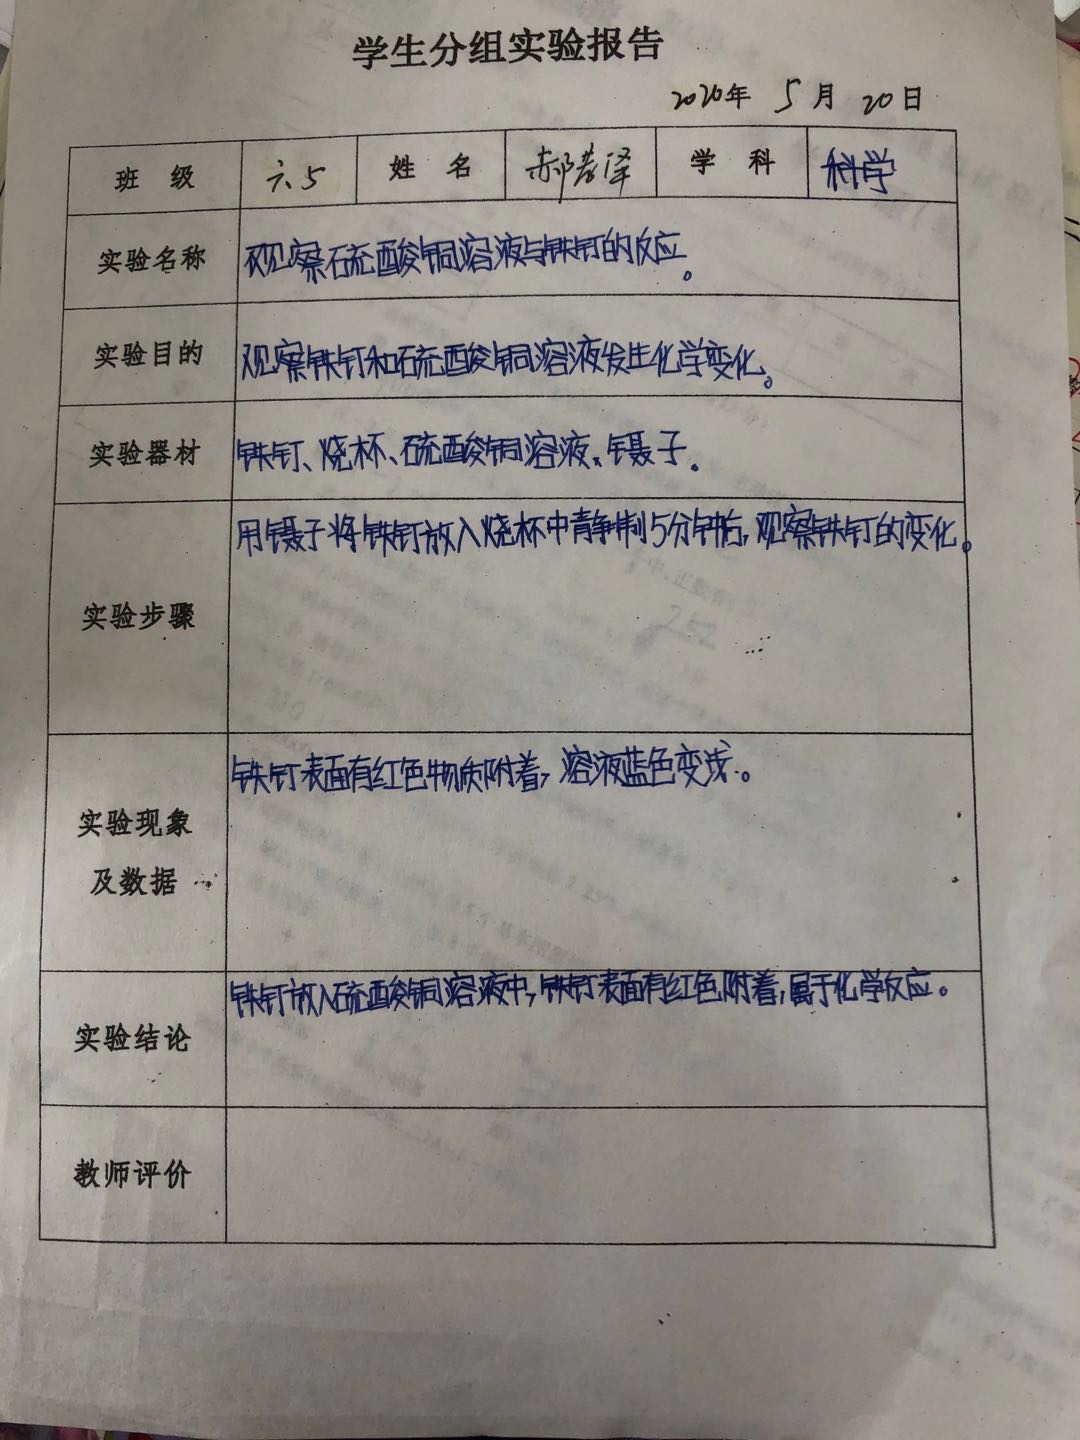 学生分组实验报告
2020年 5月 20日
班 级 六.5 姓 名 郝孝泽 学 科 科学
实验名称 观察硫酸铜溶液与铁钉的反应。
实验目的 观察铁钉和硫酸铜溶液发生化学变化。
实验器材 铁钉、烧杯、硫酸铜溶液、镊子.
用镊子将铁钉放入烧杯中静制5分钟后,观察铁钉的变化。
实验步骤
铁钉表面有红色物质附着,溶液蓝色变浅.。
实验现象
及数据
铁钉放入硫酸铜溶液中,铁钉表面有红色附着,属于化学反应。
实验结论
教师评价